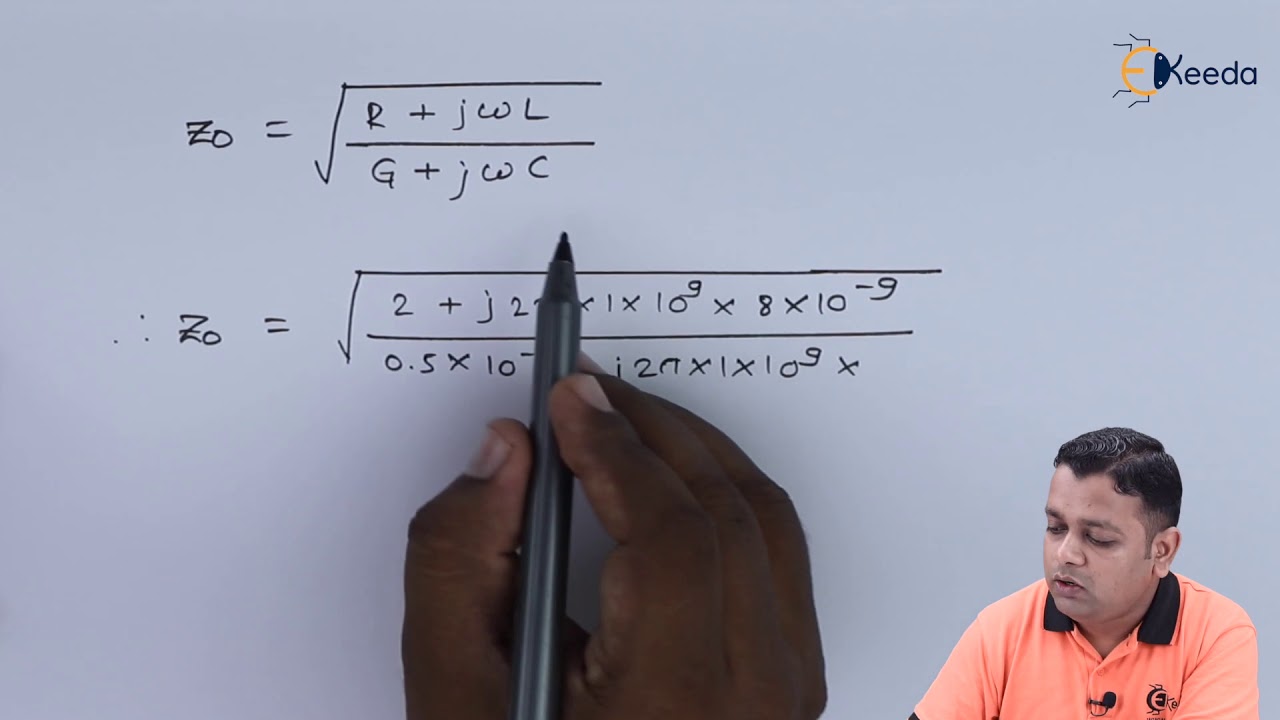 EKeeda
Z0 = √ R + jωL
G + jωC
∴ Z0 = √ 2 + j 2 × 1 × 10^9 × 8 × 10^-9
0.5 × 10^- j 2π × 1 × 10^9 ×